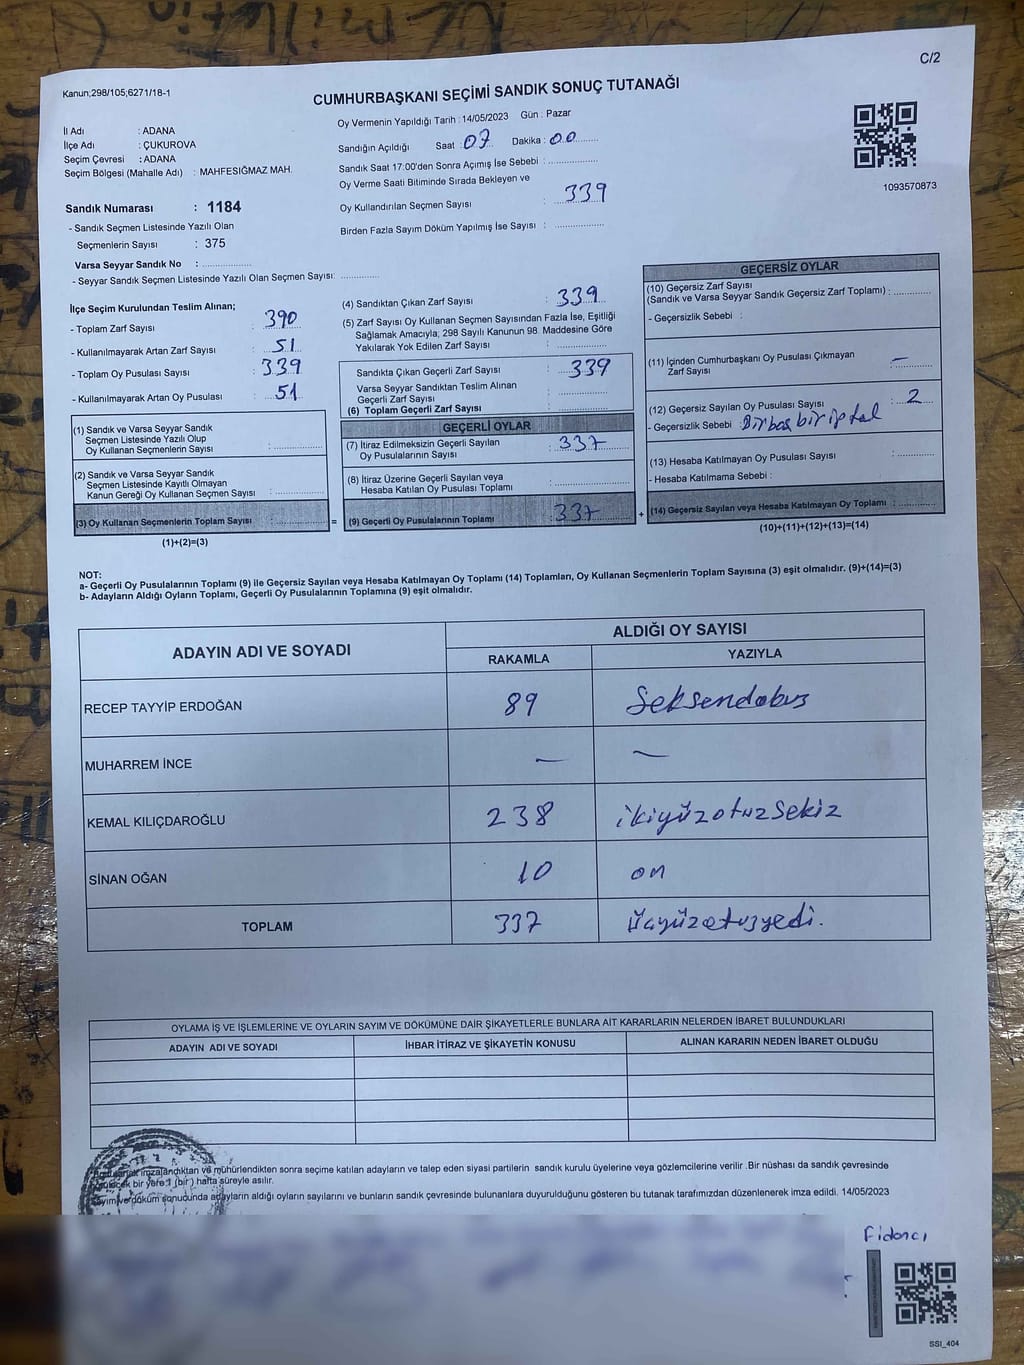 C/2
Kanun;298/105;6271/18-1
CUMHURBAŞKANI SEÇİMİ SANDIK SONUÇ TUTANAĞI
İl Adı : ADANA
İlçe Adı : ÇUKUROVA
Seçim Çevresi : ADANA
Seçim Bölgesi (Mahalle Adı) : MAHFESIĞMAZ MAH.
Sandık Numarası : 1184
- Sandık Seçmen Listesinde Yazılı Olan
Seçmenlerin Sayısı : 375
Varsa Seyyar Sandık No : ..............
- Seyyar Sandık Seçmen Listesinde Yazılı Olan Seçmen Sayısı: ............
Oy Vermenin Yapıldığı Tarih : 14/05/2023 Gün : Pazar
Sandığın Açıldığı Saat : 07 Dakika : 00
Sandık Saat 17:00'den Sonra Açımış İse Sebebi : ..............
Oy Verme Saati Bitiminde Sırada Bekleyen ve
Oy Kullandırılan Seçmen Sayısı : 339
Birden Fazla Sayım Döküm Yapılmış İse Sayısı : ..............
1093570873
İlçe Seçim Kurulundan Teslim Alınan;
- Toplam Zarf Sayısı : 390
- Kullanılmayarak Artan Zarf Sayısı : 51
- Toplam Oy Pusulası Sayısı : 339
- Kullanılmayarak Artan Oy Pusulası : 51
(1) Sandık ve Varsa Seyyar Sandık
Seçmen Listesinde Yazılı Olup
Oy Kullanan Seçmenlerin Sayısı : ..............
(2) Sandık ve Varsa Seyyar Sandık
Seçmen Listesinde Kayıtlı Olmayan
Kanun Gereği Oy Kullanan Seçmen Sayısı : ..............
(3) Oy Kullanan Seçmenlerin Toplam Sayısı : .............. =
(1)+(2)=(3)
(4) Sandıktan Çıkan Zarf Sayısı : 339
(5) Zarf Sayısı Oy Kullanan Seçmen Sayısından Fazla İse, Eşitliği
Sağlamak Amacıyla; 298 Sayılı Kanunun 98. Maddesine Göre
Yakılarak Yok Edilen Zarf Sayısı : ..............
Sandıkta Çıkan Geçerli Zarf Sayısı : 339
Varsa Seyyar Sandıktan Teslim Alınan
Geçerli Zarf Sayısı : ..............
(6) Toplam Geçerli Zarf Sayısı : ..............
GEÇERLİ OYLAR
(7) İtiraz Edilmeksizin Geçerli Sayılan
Oy Pusulalarının Sayısı : 337
(8) İtiraz Üzerine Geçerli Sayılan veya
Hesaba Katılan Oy Pusulası Toplamı : ..............
(9) Geçerli Oy Pusulalarının Toplamı : 337 +
GEÇERSİZ OYLAR
(10) Geçersiz Zarf Sayısı
(Sandık ve Varsa Seyyar Sandık Geçersiz Zarf Toplamı) : ..........
- Geçersizlik Sebebi :
(11) İçinden Cumhurbaşkanı Oy Pusulası Çıkmayan
Zarf Sayısı : —
(12) Geçersiz Sayılan Oy Pusulası Sayısı : 2
- Geçersizlik Sebebi : Bir boş bir iptal
(13) Hesaba Katılmayan Oy Pusulası Sayısı : ..........
- Hesaba Katılmama Sebebi :
(14) Geçersiz Sayılan veya Hesaba Katılmayan Oy Toplamı : ..........
(10)+(11)+(12)+(13)=(14)
NOT:
a- Geçerli Oy Pusulalarının Toplamı (9) ile Geçersiz Sayılan veya Hesaba Katılmayan Oy Toplamı (14) Toplamları, Oy Kullanan Seçmenlerin Toplam Sayısına (3) eşit olmalıdır. (9)+(14)=(3)
b- Adayların Aldığı Oyların Toplamı, Geçerli Oy Pusulalarının Toplamına (9) eşit olmalıdır.
ADAYIN ADI VE SOYADI
ALDIĞI OY SAYISI
RAKAMLA YAZIYLA
RECEP TAYYİP ERDOĞAN 89 Seksendokuz
MUHARREM İNCE — —
KEMAL KILIÇDAROĞLU 238 ikiyüzotuzsekiz
SİNAN OĞAN 10 on
TOPLAM 337 Üçyüzotuzyedi.
OYLAMA İŞ VE İŞLEMLERİNE VE OYLARIN SAYIM VE DÖKÜMÜNE DAİR ŞİKAYETLERLE BUNLARA AİT KARARLARIN NELERDEN İBARET BULUNDUKLARI
ADAYIN ADI VE SOYADI İHBAR İTİRAZ VE ŞİKAYETİN KONUSU ALINAN KARARIN NEDEN İBARET OLDUĞU
imzalandıktan ve mühürlendikten sonra seçime katılan adayların ve talep eden siyasi partilerin sandık kurulu üyelerine veya gözlemcilerine verilir .Bir nüshası da sandık çevresinde
bir yere 1 (bir) hafta süreyle asılır.
döküm sonucunda adayların aldığı oyların sayılarını ve bunların sandık çevresinde bulunanlara duyurulduğunu gösteren bu tutanak tarafımızdan düzenlenerek imza edildi. 14/05/2023
Fidancı
SSI_404